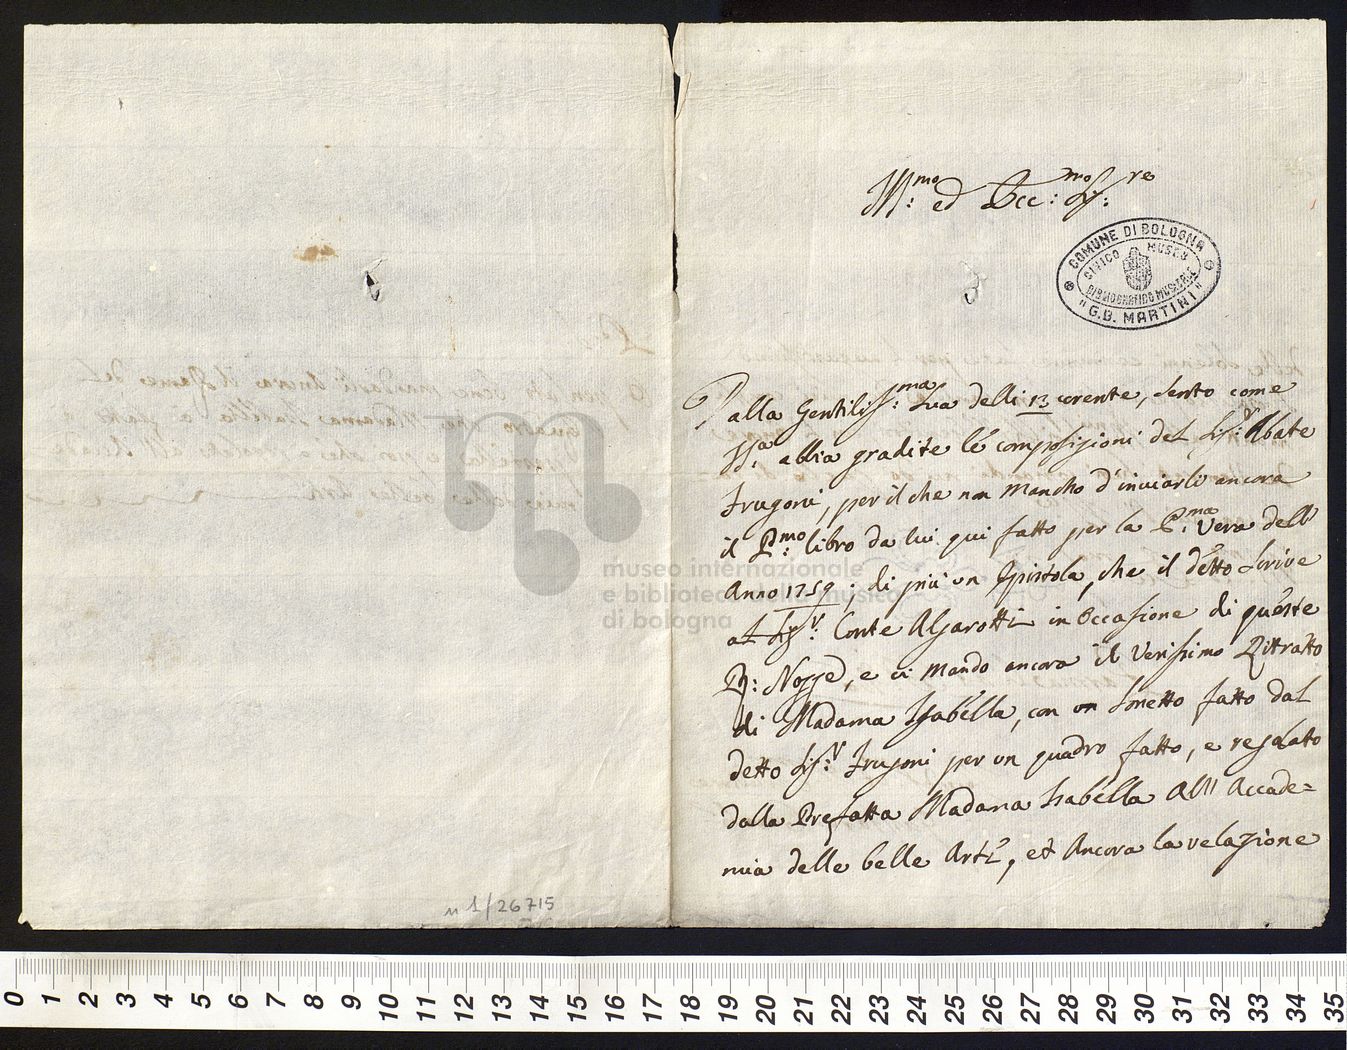 Ill.mo: ed Ecc:mo Sig:re
COMUNE DI BOLOGNA
CIVICO MUSEO
BIBLIOGRAFICO MUSICALE
"G.B. MARTINI"
Dalla Gentiliss:ma Sua delli 13 corente, Sento come
abbia gradite le composizioni del Sig:r Abate
Frugoni, per il che non Mancho d'inviarli ancora
il P:mo libro da lui qui fatto per la P:ma Vera dell'
Anno 1759; di più un Epistola, che il detto Scrive
al Sig:r Conte Algarotti in Occasione di queste
R: Nozze, e vi Mando ancora il Verissimo Rittratto
di Madama Isabella, con un Sonetto fatto dal
detto Sig:r Frugoni per un quadro fatto, e regalato
dalla Prefatta Madama Isabella All' Accade=
mia delle belle Arti, et Ancora la relazione
museo internazionale
e biblioteca della musica
di bologna
n 1/26715
0 1 2 3 4 5 6 7 8 9 10 11 12 13 14 15 16 17 18 19 20 21 22 23 24 25 26 27 28 29 30 31 32 33 34 35